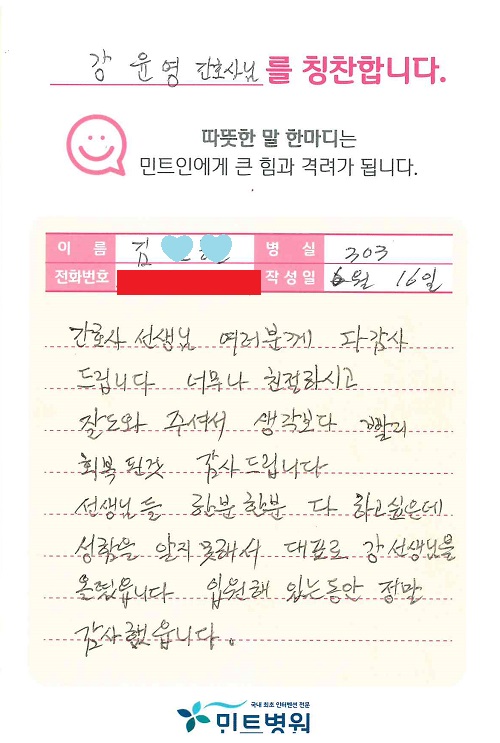 강 윤영 간호사님 를 칭찬합니다.
따뜻한 말 한마디는
민트인에게 큰 힘과 격려가 됩니다.
이 름 김 병 실 303
전화번호 작성일 6월 16일
간호사 선생님 여러분께 다감사
드립니다 너무나 친절하시고
잘도와 주셔서 생각보다 빨리
회복 된것 감사드립니다
선생님들 한분한분 다 하고싶은데
성함을 알지못해서 대표로 강선생님을
올렸읍니다 입원해 있는동안 정말
감사했읍니다.
국내 최초 인터벤션 전문
민트병원